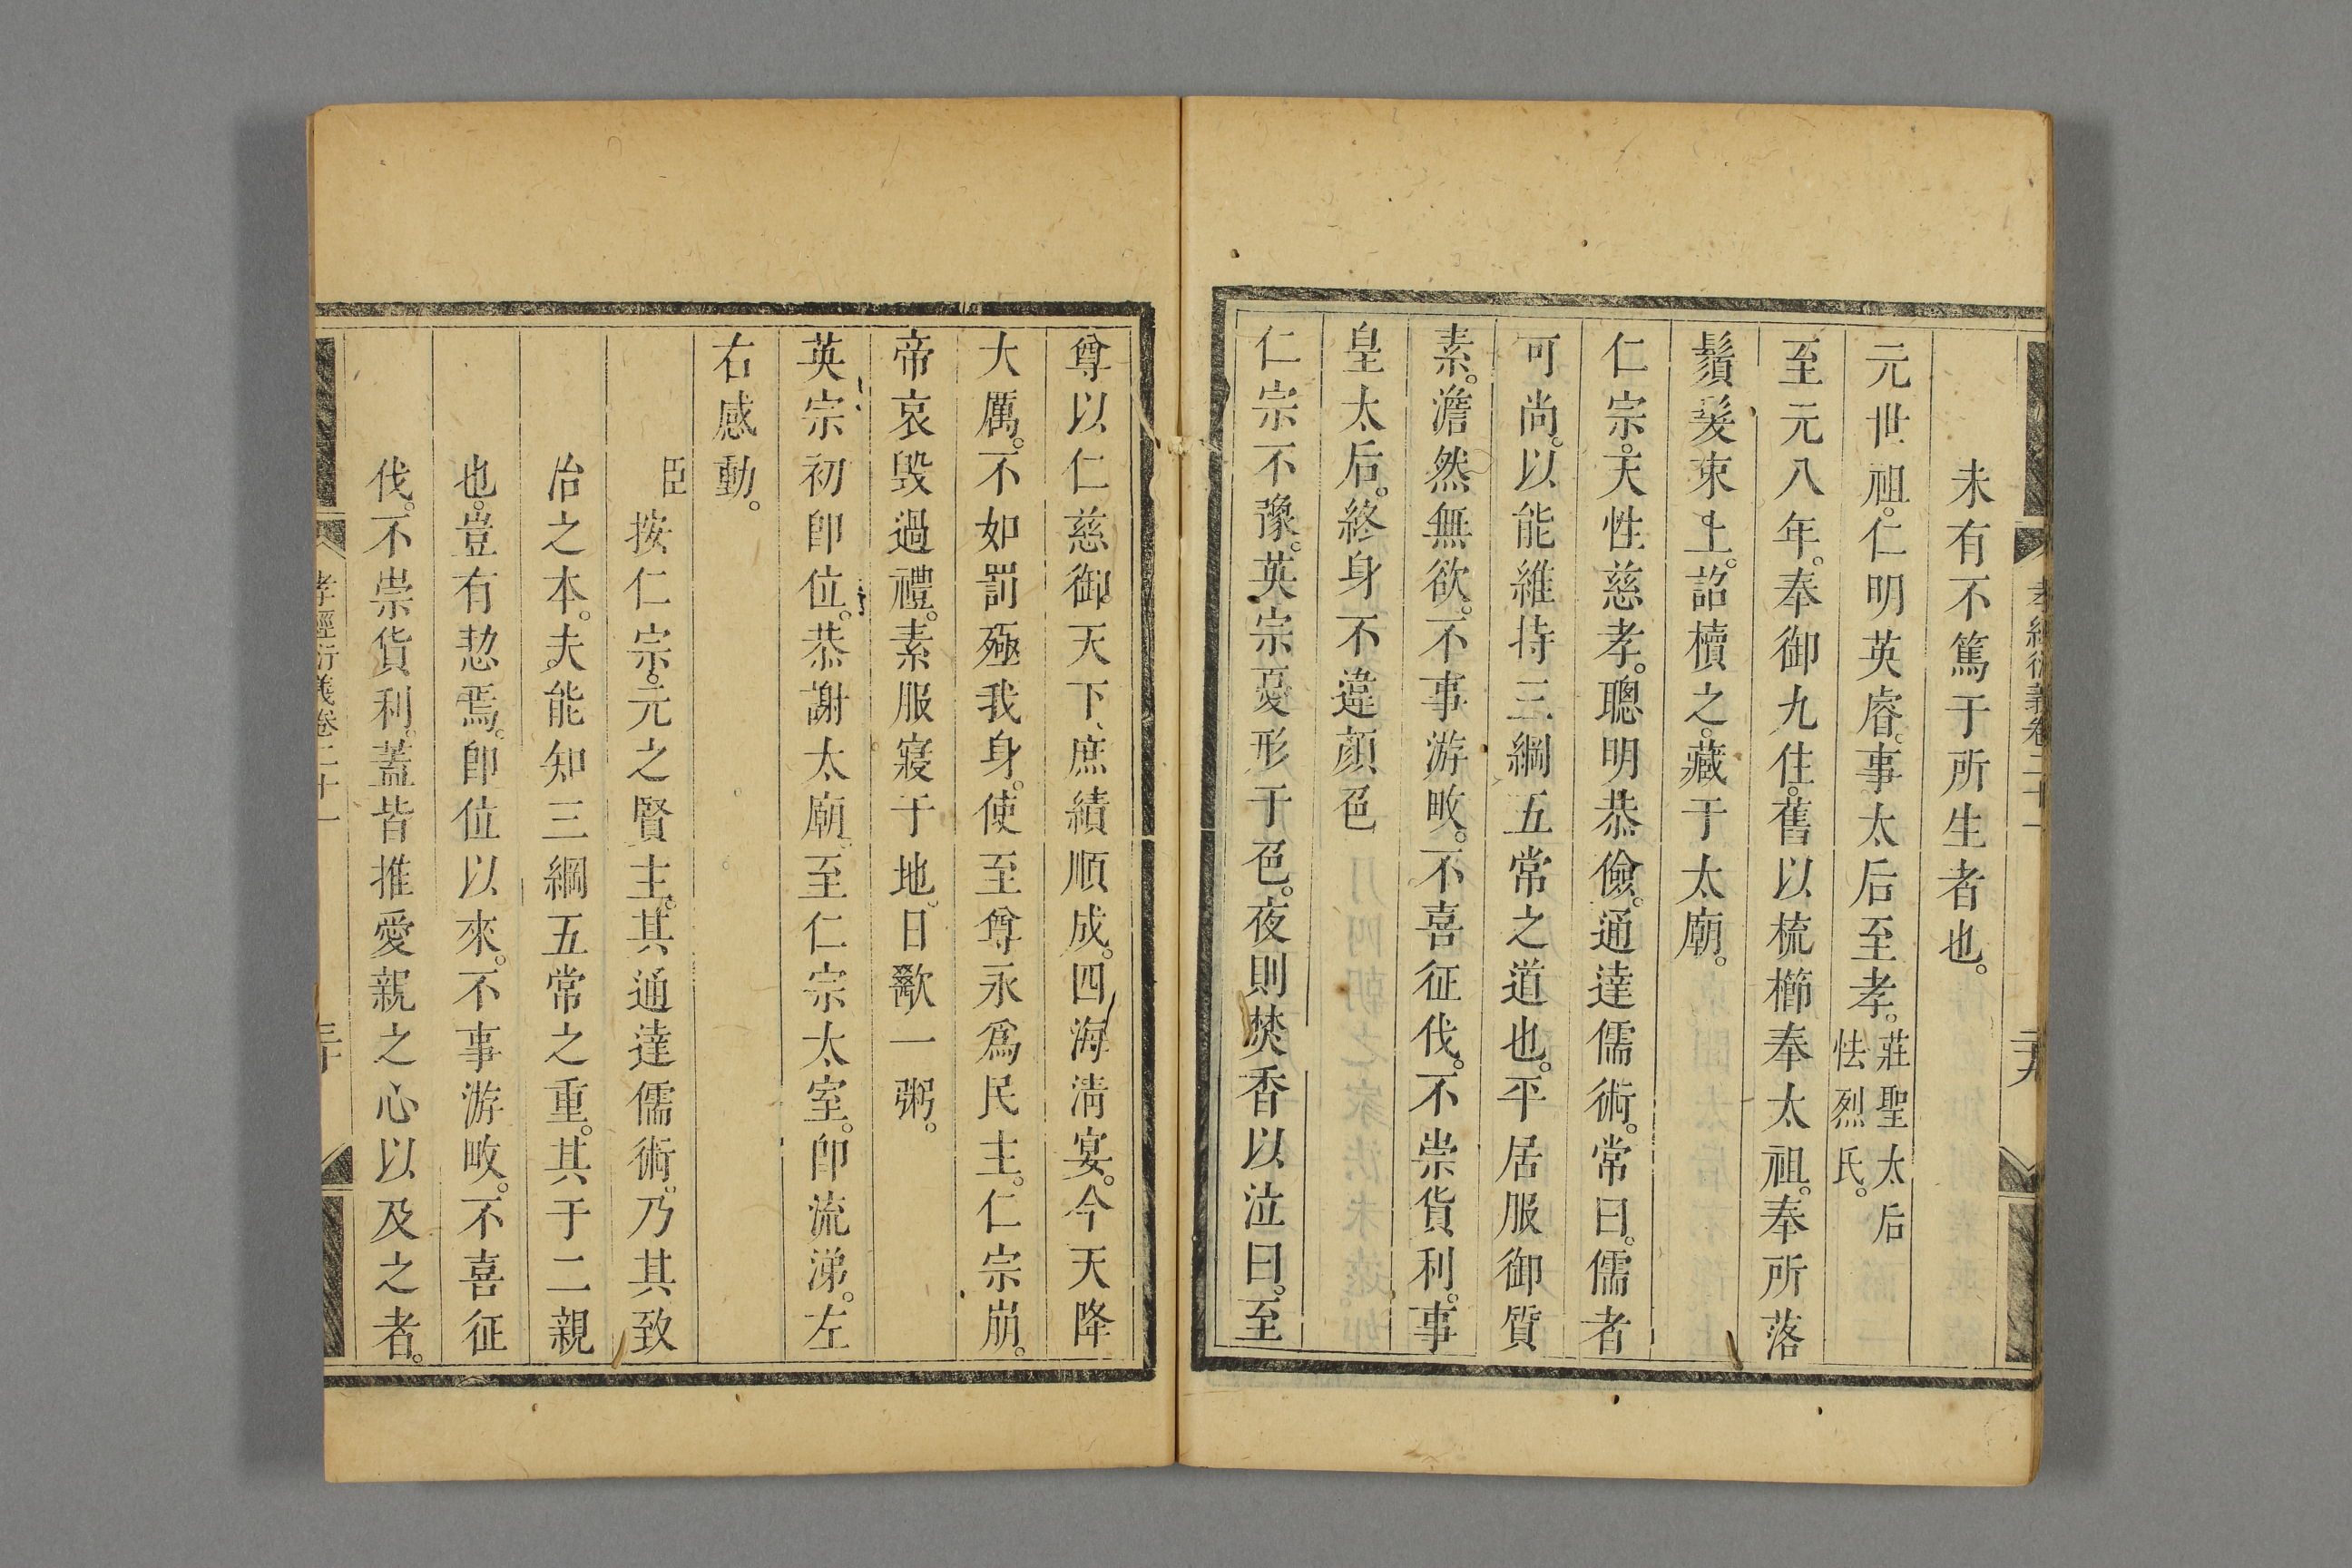 孝經衍義卷二十一
二十九
未有不篤于所生者也。
元世祖。仁明英睿。事太后至孝。莊聖太后怯烈氏。
至元八年。奉御九住。舊以梳櫛奉太祖。奉所落
鬚髮束上。詔櫝之。藏于太廟。
仁宗。天性慈孝。聰明恭儉。通達儒術。常曰。儒者
可尚。以能維持三綱五常之道也。平居服御質
素。澹然無欲。不事游畋。不喜征伐。不崇貨利。事
皇太后。終身不違顏色
仁宗不豫。英宗憂形于色。夜則焚香以泣曰。至
尊以仁慈御天下、庶績順成。四海淸宴。今天降
大厲。不如罰殛我身。使至尊永爲民主。仁宗崩。
帝哀毀過禮。素服寢于地。日歠一粥。
英宗初卽位。恭謝太廟。至仁宗太室。卽流涕。左
右感動。
臣按仁宗。元之賢主。其通達儒術。乃其致
治之本。夫能知三綱五常之重。其于二親
也。豈有恝焉。卽位以來。不事游畋。不喜征
伐。不崇貨利。蓋皆推愛親之心以及之者。
孝經衍義卷二十一
三十